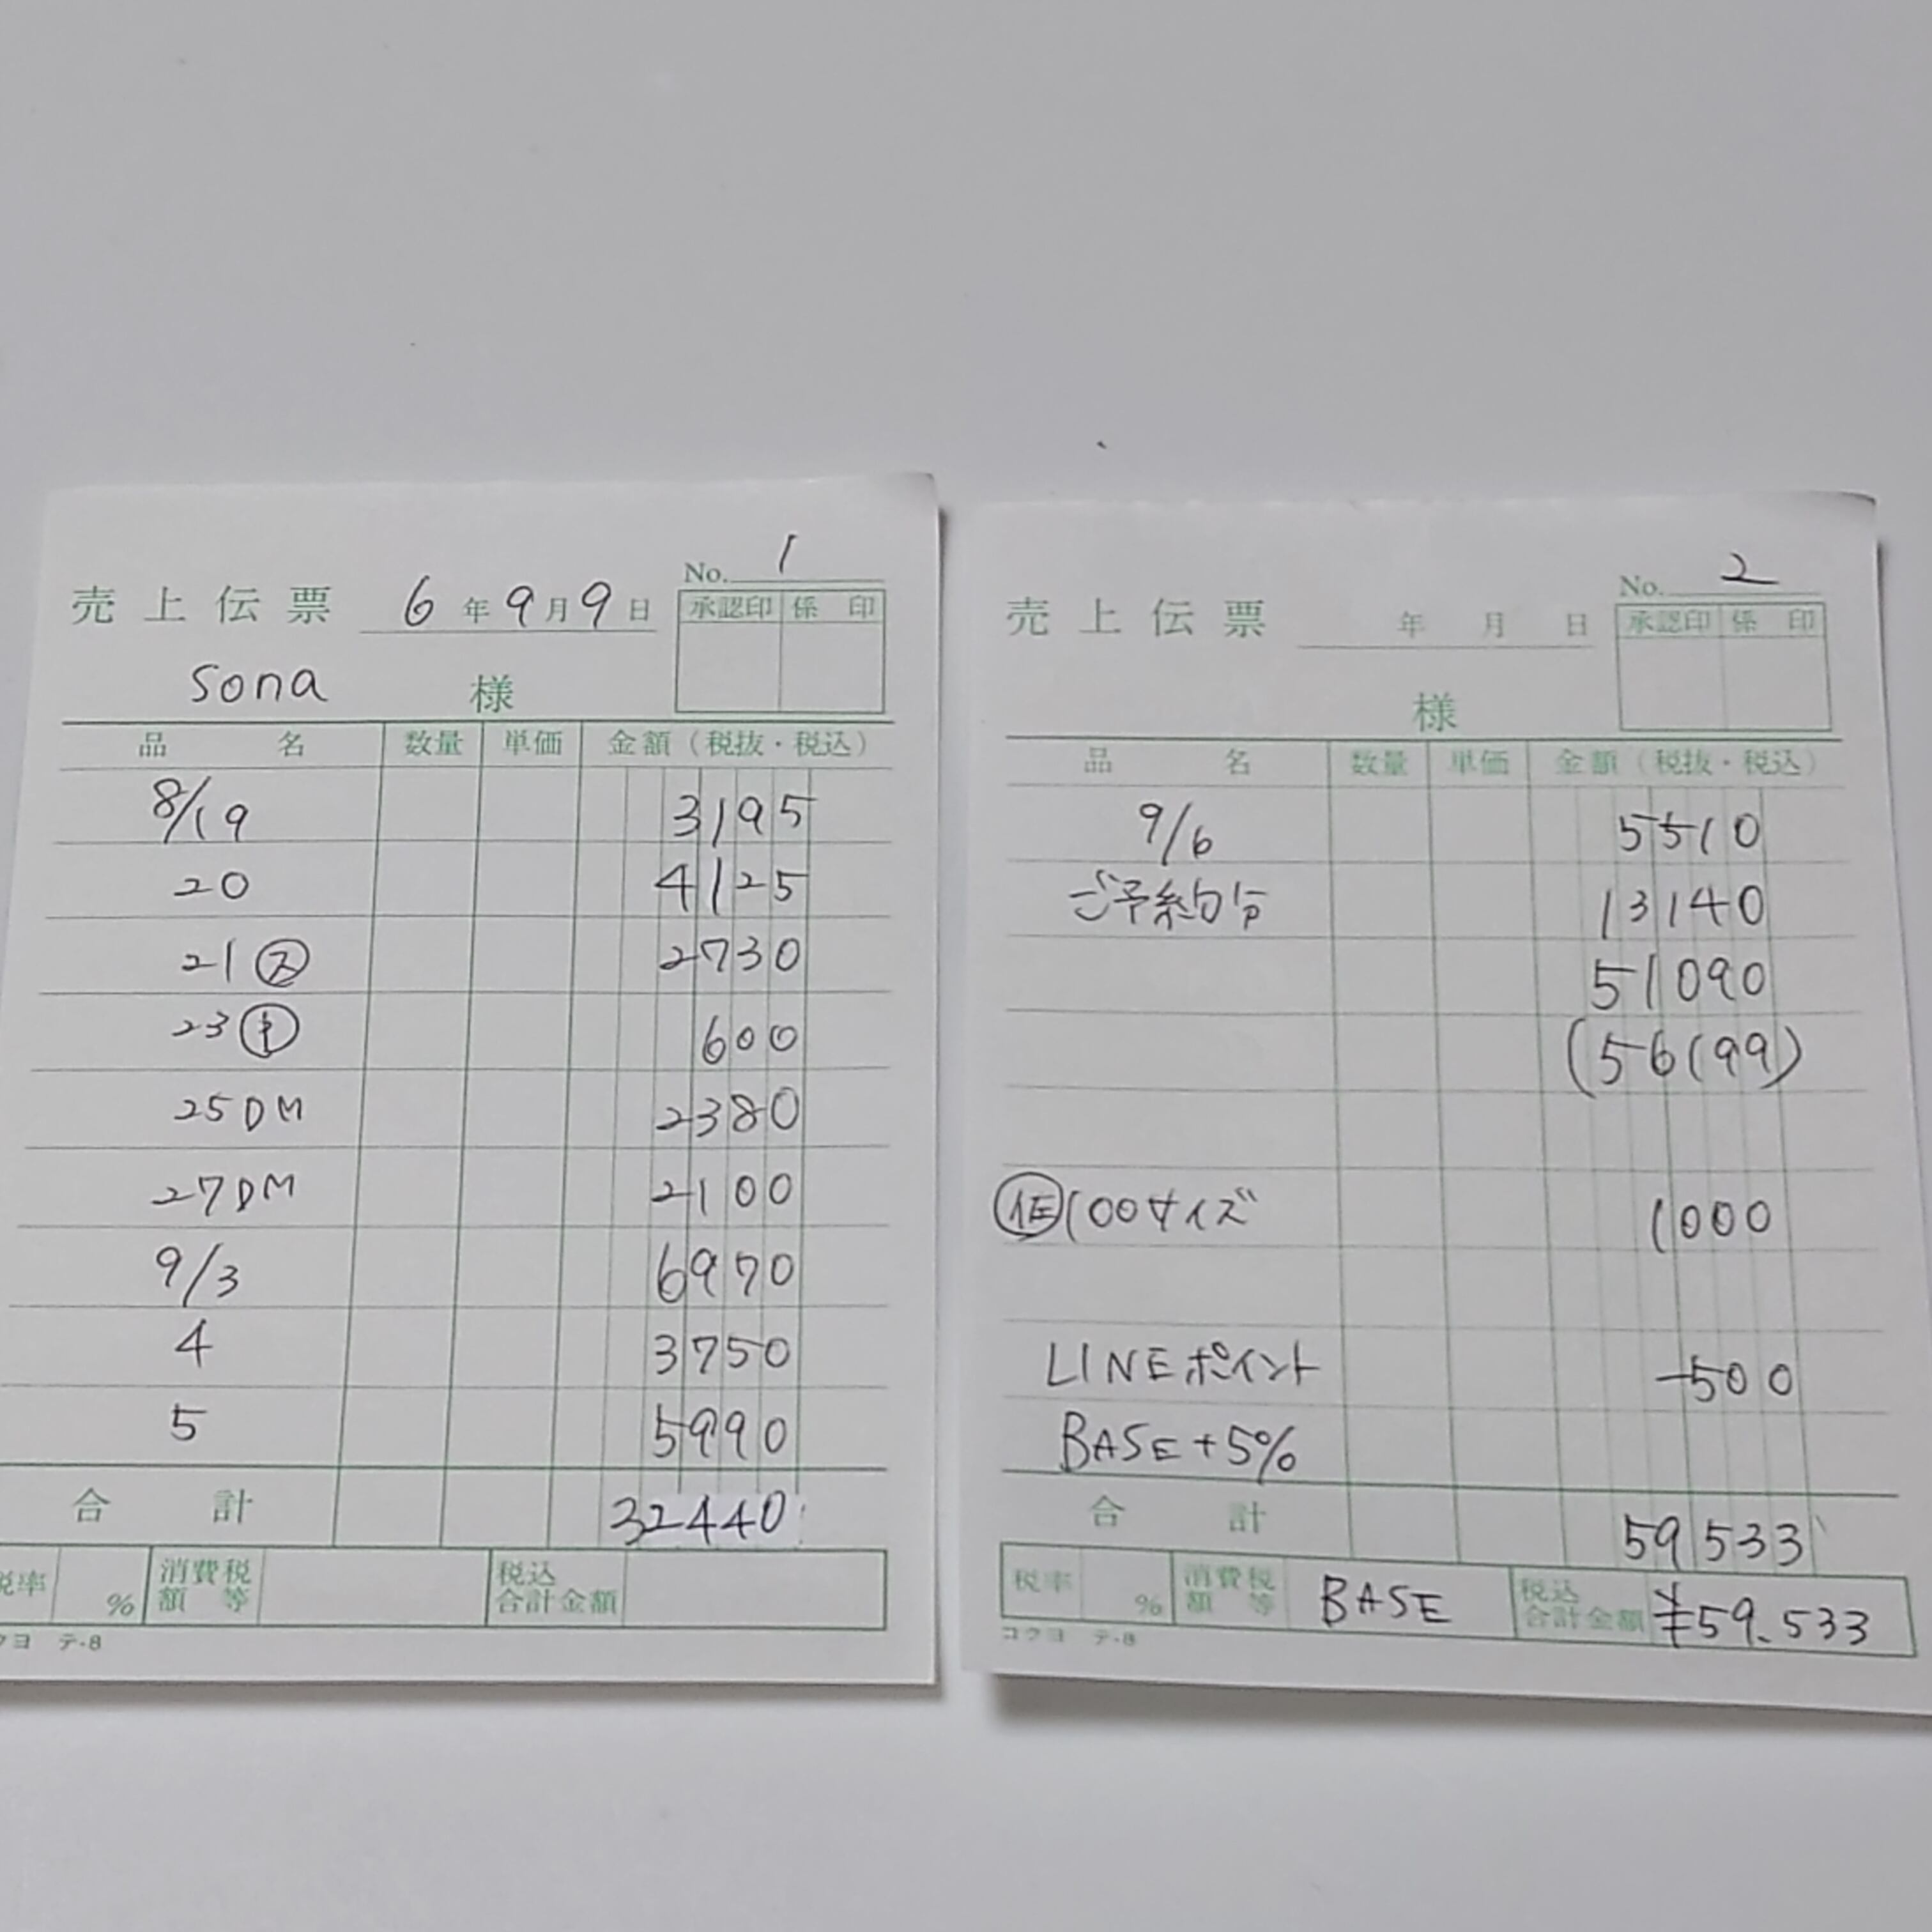 No. 1
売上伝票 6年9月9日
承認印 係印
sona 様
品名 数量 単価 金額(税抜・税込)
8/19 3195
20 4125
21 ㋜ 2730
23 2️600
25DM 2380
27DM 2100
9/3 6970
4 3750
5 5990
合計 32440
税率 % 消費税額等 税込合計金額
クヨ テ-8
No. 2
売上伝票 年 月 日
承認印 係印
様
品名 数量 単価 金額(税抜・税込)
9/6 5510
ご予約分 13140
51090
(56199)
100サイズ 1000
LINEポイント -500
BASE+5%
合計 59533
税率 % 消費税額等 BASE 税込合計金額 ¥59.533
コクヨ テ-8